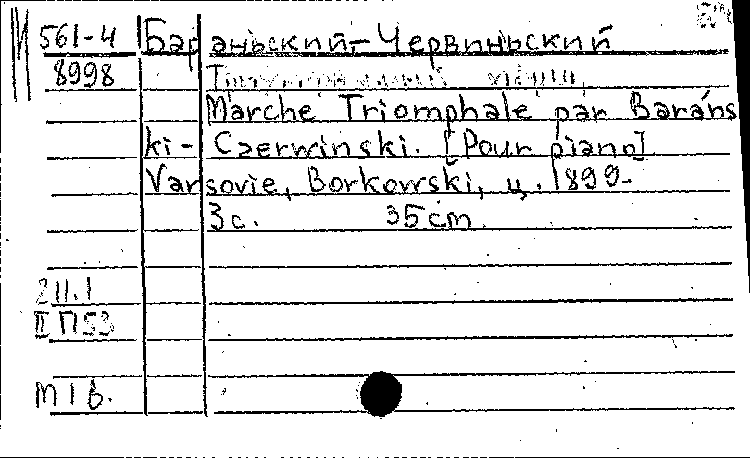 561-4 Бараньский-Червиньский
8998
Marche Triomphale par Barańs
ki- Czerwinski. [Pour piano]
Varsovie, Borkowski, ц. 1899-
3с. 35cm
211.1
II П53
m 1 в.